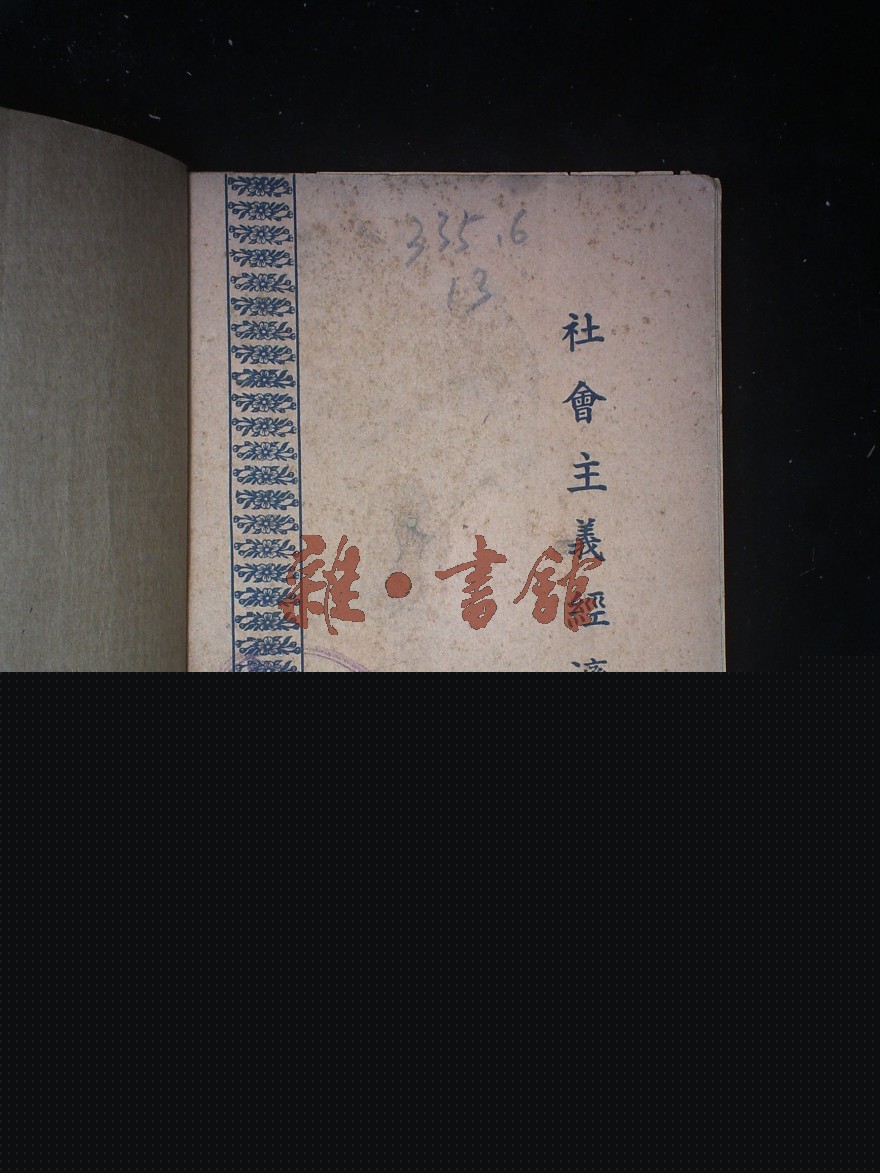 335.6
13
社會主義經濟
雜·書館